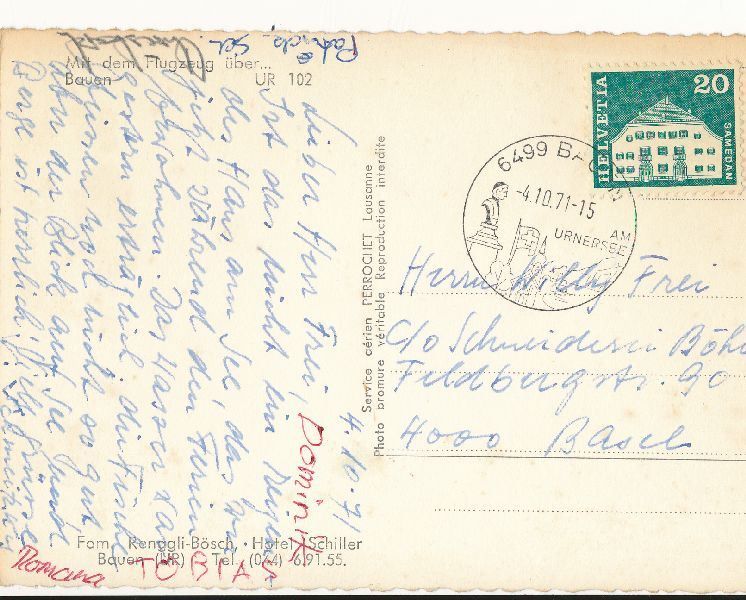 Mit dem Flugzeug über...
Bauen UR 102
4.10.71
Lieber Herr Frei,
Ist das nicht ein
das Haus am See, das wir
jetzt während den Ferien
bewohnen. Das Wasser war
gestern erträglich, die Fische
aber der Blick auf See und
Berge ist herrlich. Viele Grüsse
Dominik
TOBIAS
Romana
Patrick
Fam. Renggli-Bösch, Hotel Schiller
Bauen (UR) Tel. (044) 6.91.55.
Service aérien PERROCHET Lausanne
Photo promure véritable Reproduction interdite
HELVETIA
20
SAMEDAN
6499 BAUEN
-4.10.71-15
AM
URNERSEE
Herrn Willy Frei
c/o Schneiderei
Feldbergstr. 90
4000 Basel